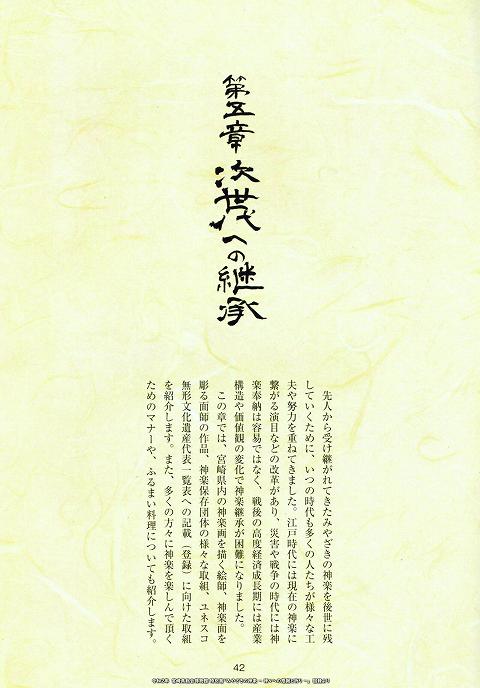 第五章 次世代への継承
先人から受け継がれてきたみやざきの神楽を後世に残
していくために、いつの時代も多くの人たちが様々な工
夫や努力を重ねてきました。江戸時代には現在の神楽に
繋がる演目などの改革があり、災害や戦争の時代には神
楽奉納は容易ではなく、戦後の高度経済成長期には産業
構造や価値観の変化で神楽継承が困難になりました。
この章では、宮崎県内の神楽画を描く絵師、神楽面を
彫る面師の作品、神楽保存団体の様々な取組、ユネスコ
無形文化遺産代表一覧表への記載(登録)に向けた取組
を紹介します。また、多くの方々に神楽を楽しんで頂く
ためのマナーや、ふるまい料理についても紹介します。
42